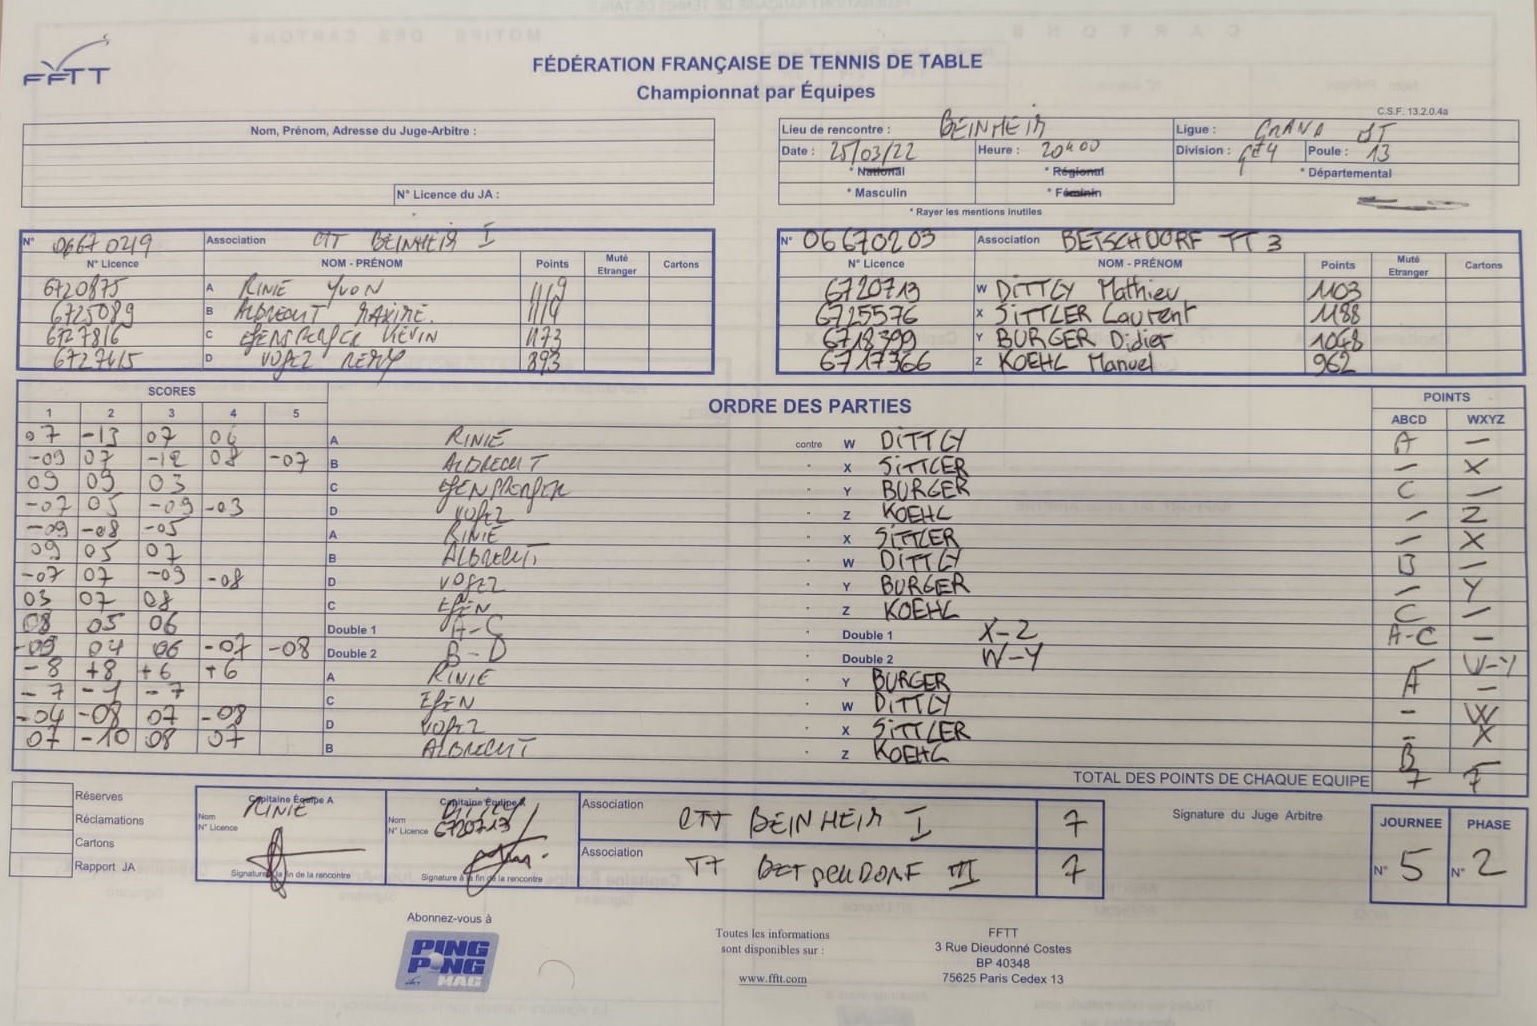 FFTT
FÉDÉRATION FRANÇAISE DE TENNIS DE TABLE
Championnat par Équipes
C.S.F. 13.2.0.4a
Nom, Prénom, Adresse du Juge-Arbitre :
N° Licence du JA :
Lieu de rencontre : BEINHEIM Ligue : GRAND EST
Date : 25/03/22 Heure : 20h00 Division : GE4 Poule : 13
* National * Régional * Départemental
* Masculin * Féminin
* Rayer les mentions inutiles
N° 06670219 Association CTT BEINHEIM I
N° Licence NOM - PRÉNOM Points Muté Etranger Cartons
6720875 A RINIE YVON 1119
6725089 B ALBRECHT MAXIME 1114
6727816 C KEVIN 1173
6727415 D REMY 893
N° 06670203 Association BETSCHDORF TT 3
N° Licence NOM - PRÉNOM Points Muté Etranger Cartons
6720713 W DITTLY Mathieu 1103
6725576 X SITTLER Laurent 1188
6718399 Y BURGER Didier 1048
6717366 Z KOEHL Manuel 962
SCORES ORDRE DES PARTIES POINTS
1 2 3 4 5 ABCD WXYZ
07 -13 07 06 A RINIE contre W DITTLY A –
-09 07 -12 08 -07 B ALBRECHT . X SITTLER – X
09 09 03 C . Y BURGER C –
-07 05 -09 -03 D . Z KOEHL – Z
-09 -08 -05 A RINIE . X SITTLER – X
09 05 07 B ALBRECHT . W DITTLY B –
-07 07 -09 -08 D . Y BURGER – Y
03 07 08 C . Z KOEHL C –
08 05 06 Double 1 A-C . Double 1 X-Z A-C –
-09 04 06 -07 -08 Double 2 B-D . Double 2 W-Y – W-Y
-8 +8 +6 +6 A RINIE . Y BURGER A –
-7 -1 -7 C . W DITTLY – W
-04 -08 07 -08 D . X SITTLER – X
07 -10 08 07 B ALBRECHT . Z KOEHL B –
TOTAL DES POINTS DE CHAQUE EQUIPE 7 7
Réserves
Réclamations
Cartons
Rapport JA
Capitaine Équipe A
Nom RINIE
N° Licence
Signature à la fin de la rencontre
Capitaine Équipe
Nom DITTLY
N° Licence 6720713
Signature à la fin de la rencontre
Association CTT BEINHEIM I 7
Association TT BETSCHDORF III 7
Signature du Juge Arbitre
JOURNEE PHASE
N° 5 N° 2
Abonnez-vous à
PING PONG MAG
Toutes les informations
sont disponibles sur :
www.fftt.com
FFTT
3 Rue Dieudonné Costes
BP 40348
75625 Paris Cedex 13